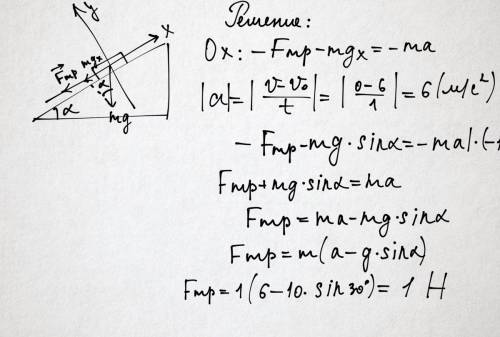 Решение:
y
x
Fтр
mgx
α
α
mg
Ox: -Fтр-mgx=-ma
|a|=|v-v₀/t|=|0-6/1|=6(м/с²)
-Fтр-mg·sinα=-ma|·(-1
Fтр+mg·sinα=ma
Fтр=ma-mg·sinα
Fтр=m(a-g·sinα)
Fтр=1(6-10·sin30°)=1 H